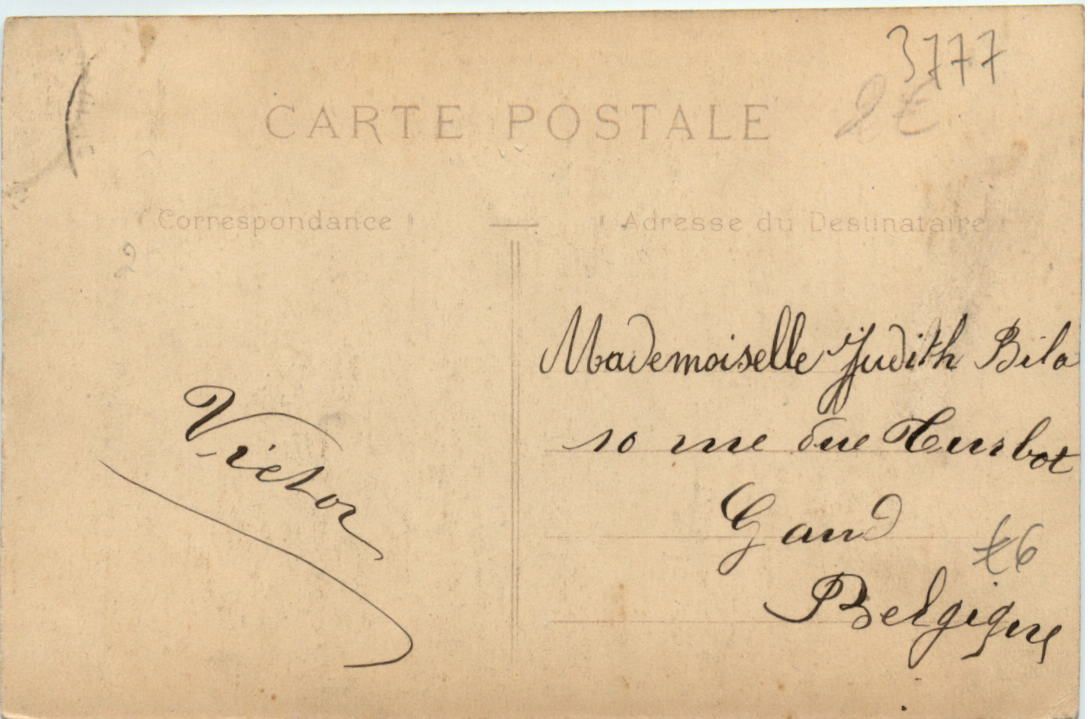 3777
2€
CARTE POSTALE
Correspondance
Adresse du Destinataire
Mademoiselle Judith Bila
10 rue due Turbot
Gand
€6
Belgique
Victor